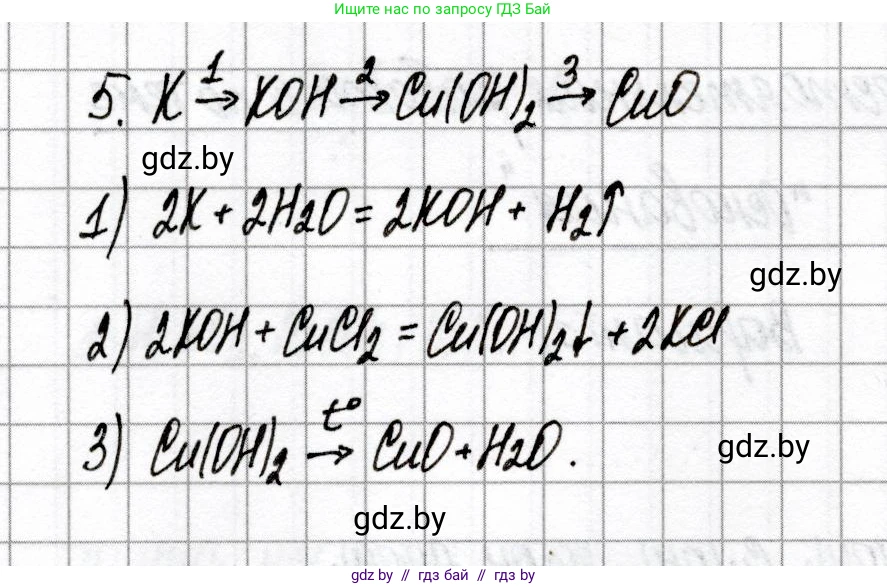 Ищите нас по запросу ГДЗ Бай
5. K →¹ KOH →² Cu(OH)₂ →³ CuO
gdz.by
1) 2K + 2H₂O = 2KOH + H₂↑
gdz.by
2) 2KOH + CuCl₂ = Cu(OH)₂↓ + 2KCl
3) Cu(OH)₂ →t° CuO + H₂O.
gdz.by
gdz.by
gdz.by // гдз бай // гдз by